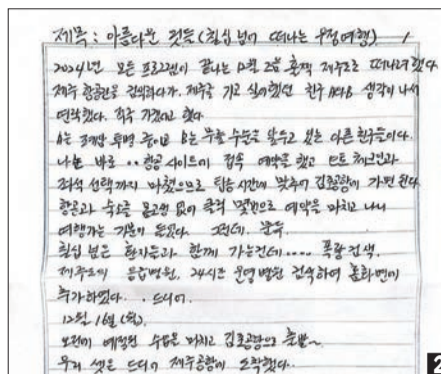 제목 : 아름다운 것들 (칠십 넘어 떠나는 우정여행) 1
2024년 모든 프로그램이 끝나는 12월 훌쩍 제주도로 떠나려 했다.
제주 항공권을 검색하다가. 제주를 가고 싶어했던 친구 A와B 생각이 나서
연락했다. 가겠다고 했다.
A는 투병 중이고 B는 무릎 수술을 앞두고 있는 다른 친구들이다.
나는 바로 .. 항공 사이트에 접속 예약을 했고 체크인과
좌석 선택까지 마쳤으므로 탑승시간에 맞추어 김포공항에 가면 된다.
항공과 숙소를 없이 클릭 몇번으로 예약을 마치고 나니
여행가는 기분이 들었다. 그런데. 문득.
칠십 넘은 환자들과 함께 가는건데.... 폭풍검색.
제주도의 응급병원. 24시간 운영 병원 검색하여
추가하였다. . 드디어.
12월 16일 (월).
오전에 예정된 수업을 마치고 김포공항으로 출발~
우리 셋은 드디어 제주공항에 도착했다..
2